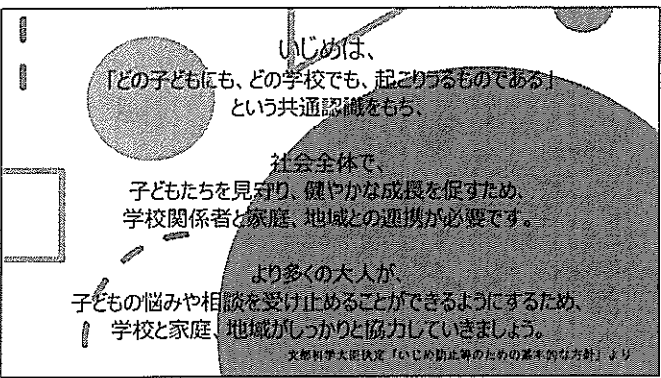 いじめは、
「どの子どもにも、どの学校でも、起こりうるものである」
という共通認識をもち、
社会全体で、
子どもたちを見守り、健やかな成長を促すため、
学校関係者と家庭、地域との連携が必要です。
より多くの大人が、
子どもの悩みや相談を受け止めることができるようにするため、
学校と家庭、地域がしっかりと協力していきましょう。
文部科学大臣決定「いじめ防止等のための基本的な方針」より